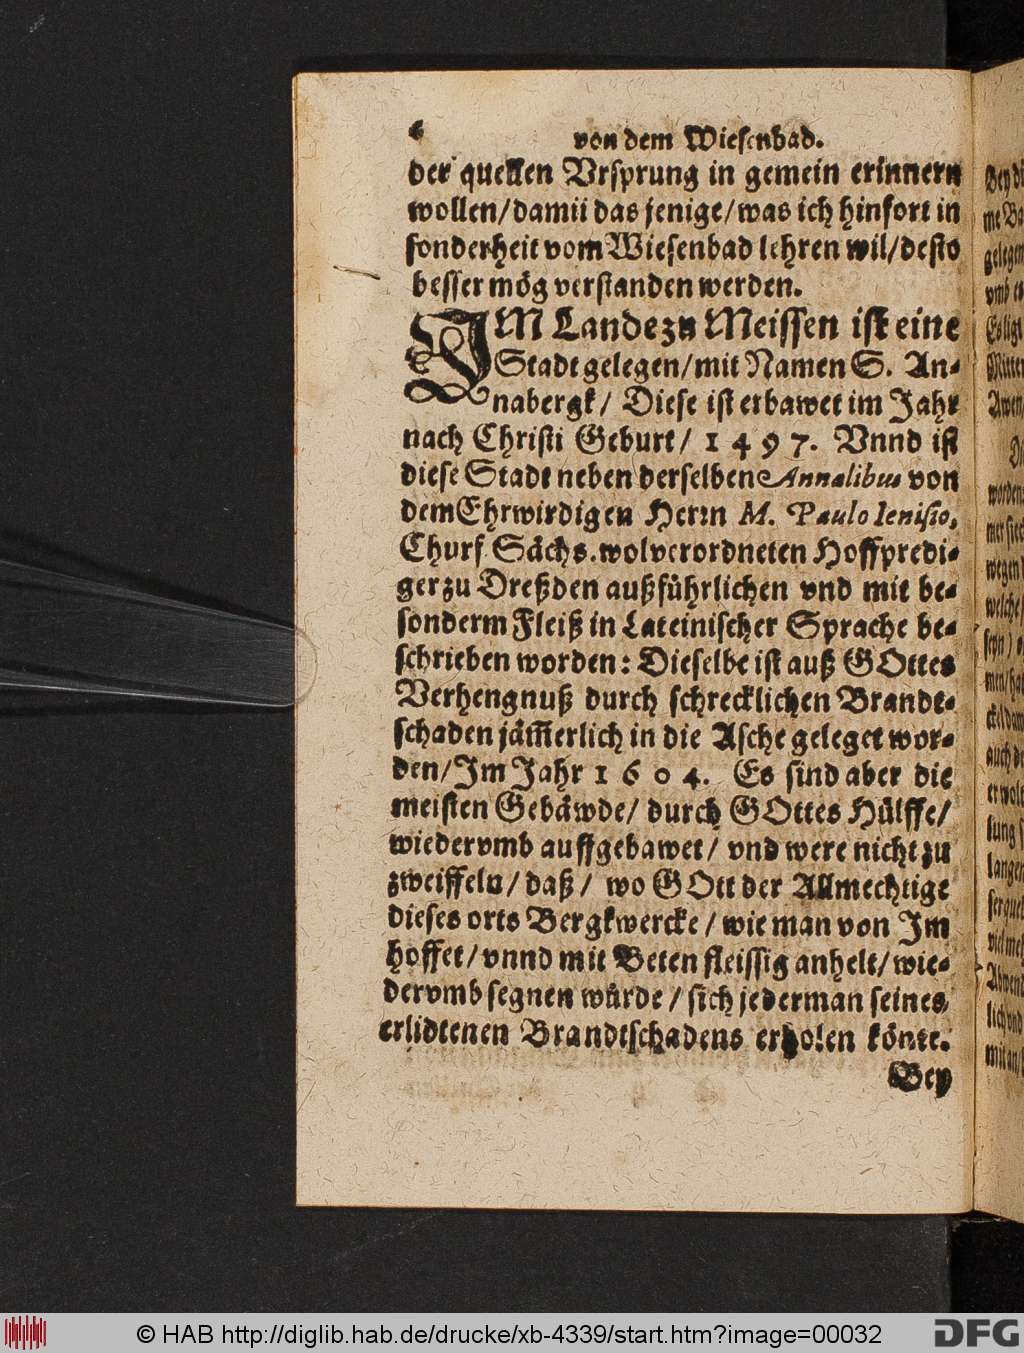 6
von dem Wiesenbad.
der quellen Vrsprung in gemein erinnern
wollen/damii das jenige/was ich hinfort in
sonderheit vom Wiesenbad lehren wil/desto
besser mög verstanden werden.
IM Lande zu Meissen ist eine
Stadt gelegen/mit Namen S. An-
nabergk/ Diese ist erbawet im Jahr
nach Christi Geburt/ 1497. Vnnd ist
diese Stadt neben derselben Annalibus von
dem Ehrwirdigen Herrn M. Paulo Ienisio,
Churf. Sächs. wolverordneten Hoffpredi-
ger zu Dreßden außführlichen vnd mit be-
sonderm Fleiß in Lateinischer Sprache be-
schrieben worden: Dieselbe ist auß GOttes
Verhengnuß durch schrecklichen Brandt-
schaden jäm̃erlich in die Asche geleget wor-
den/Im Jahr 1604. Es sind aber die
meisten Gebäwde/ durch GOttes Hülffe/
wiedervmb auffgebawet/ vnd were nicht zu
zweiffeln/ daß/ wo GOtt der Allmechtige
dieses orts Bergkwercke/ wie man von Im
hoffet/ vnnd mit Beten fleissig anhelt/ wie-
dervmb segnen würde/ sich jederman seines
erlidtenen Brandtschadens erholen könte.
Bey
© HAB http://diglib.hab.de/drucke/xb-4339/start.htm?image=00032
DFG